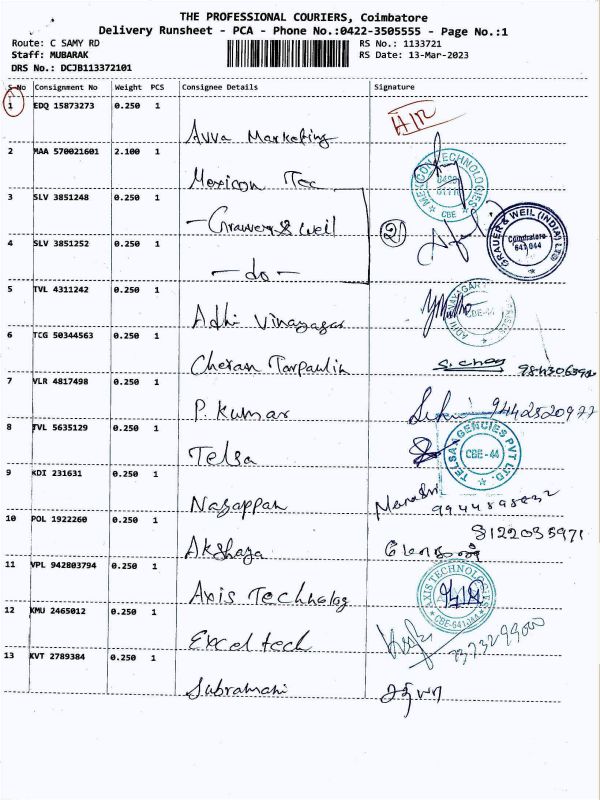 THE PROFESSIONAL COURIERS, Coimbatore
Delivery Runsheet - PCA - Phone No.:0422-3505555 - Page No.:1
Route: C SAMY RD
RS No.: 1133721
Staff: MUBARAK
RS Date: 13-Mar-2023
DRS No.: DCJB113372101
S No Consignment No Weight PCS Consignee Details Signature
1 EDQ 15873273 0.250 1
Avva Marketing
2 MAA 570021601 2.100 1
Mexicon Tec
MEXICON TECHNOLOGIES
CBE
3 SLV 3851248 0.250 1
Grauer & Weil
2
GRAUER & WEIL (INDIA) LTD
Coimbatore
641 044
4 SLV 3851252 0.250 1
- do -
5 TVL 4311242 0.250 1
Adhi Vinayagar
CBE-44
6 TCG 50344563 0.250 1
Cheran Tarpaulin
7 VLR 4817498 0.250 1
P. Kumar
9442520977
8 TVL 5635129 0.250 1
Telsa
TELSA AGENCIES PVT LTD.
CBE-44
9 KDI 231631 0.250 1
Nagappan
10 POL 1922260 0.250 1
8122035971
Akshaya
11 VPL 942803794 0.250 1
Axis Technolog
AXIS TECHNOLOGIES
CBE-641044
12 KMU 2465012 0.250 1
Excel tech
7373299000
13 KVT 2789384 0.250 1
Subramani